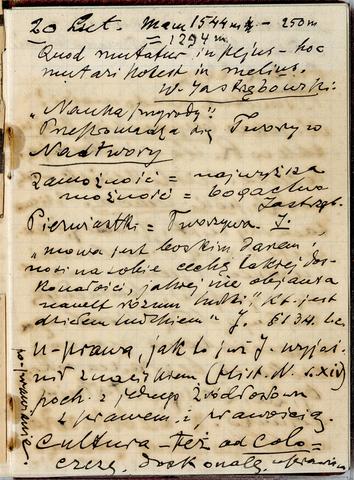 20 Lut. Mam 1544 m – 250 m
= 1294 m.
Quod mutatur in pejus – hoc
mutari potest in melius.
W. Jastrzębowski.
„Nauka przyrody”.
Przeprowadza się Twory w
Nadtwory
Zamożność = najwyższa
możność = bogactwo
Jastrzęb.
Pierwiastki = Tworzywa. J.
„mowa jest boskim darem,
nosi na sobie cechę takiej dos-
konałości, jakiej nie objawia
nawet rozum ludzki”, kt. jest
dziełem ludzkiem” J. § 134.
U-prawa, jak to już J. wyjaś-
nił znaczkiem (Hist. N. s. XIV)
poch. z jednego źródłosłowu
z prawem i prawością.
Cultura – też od colo –
czczę, doskonalę, uprawiam
po-prawianie.